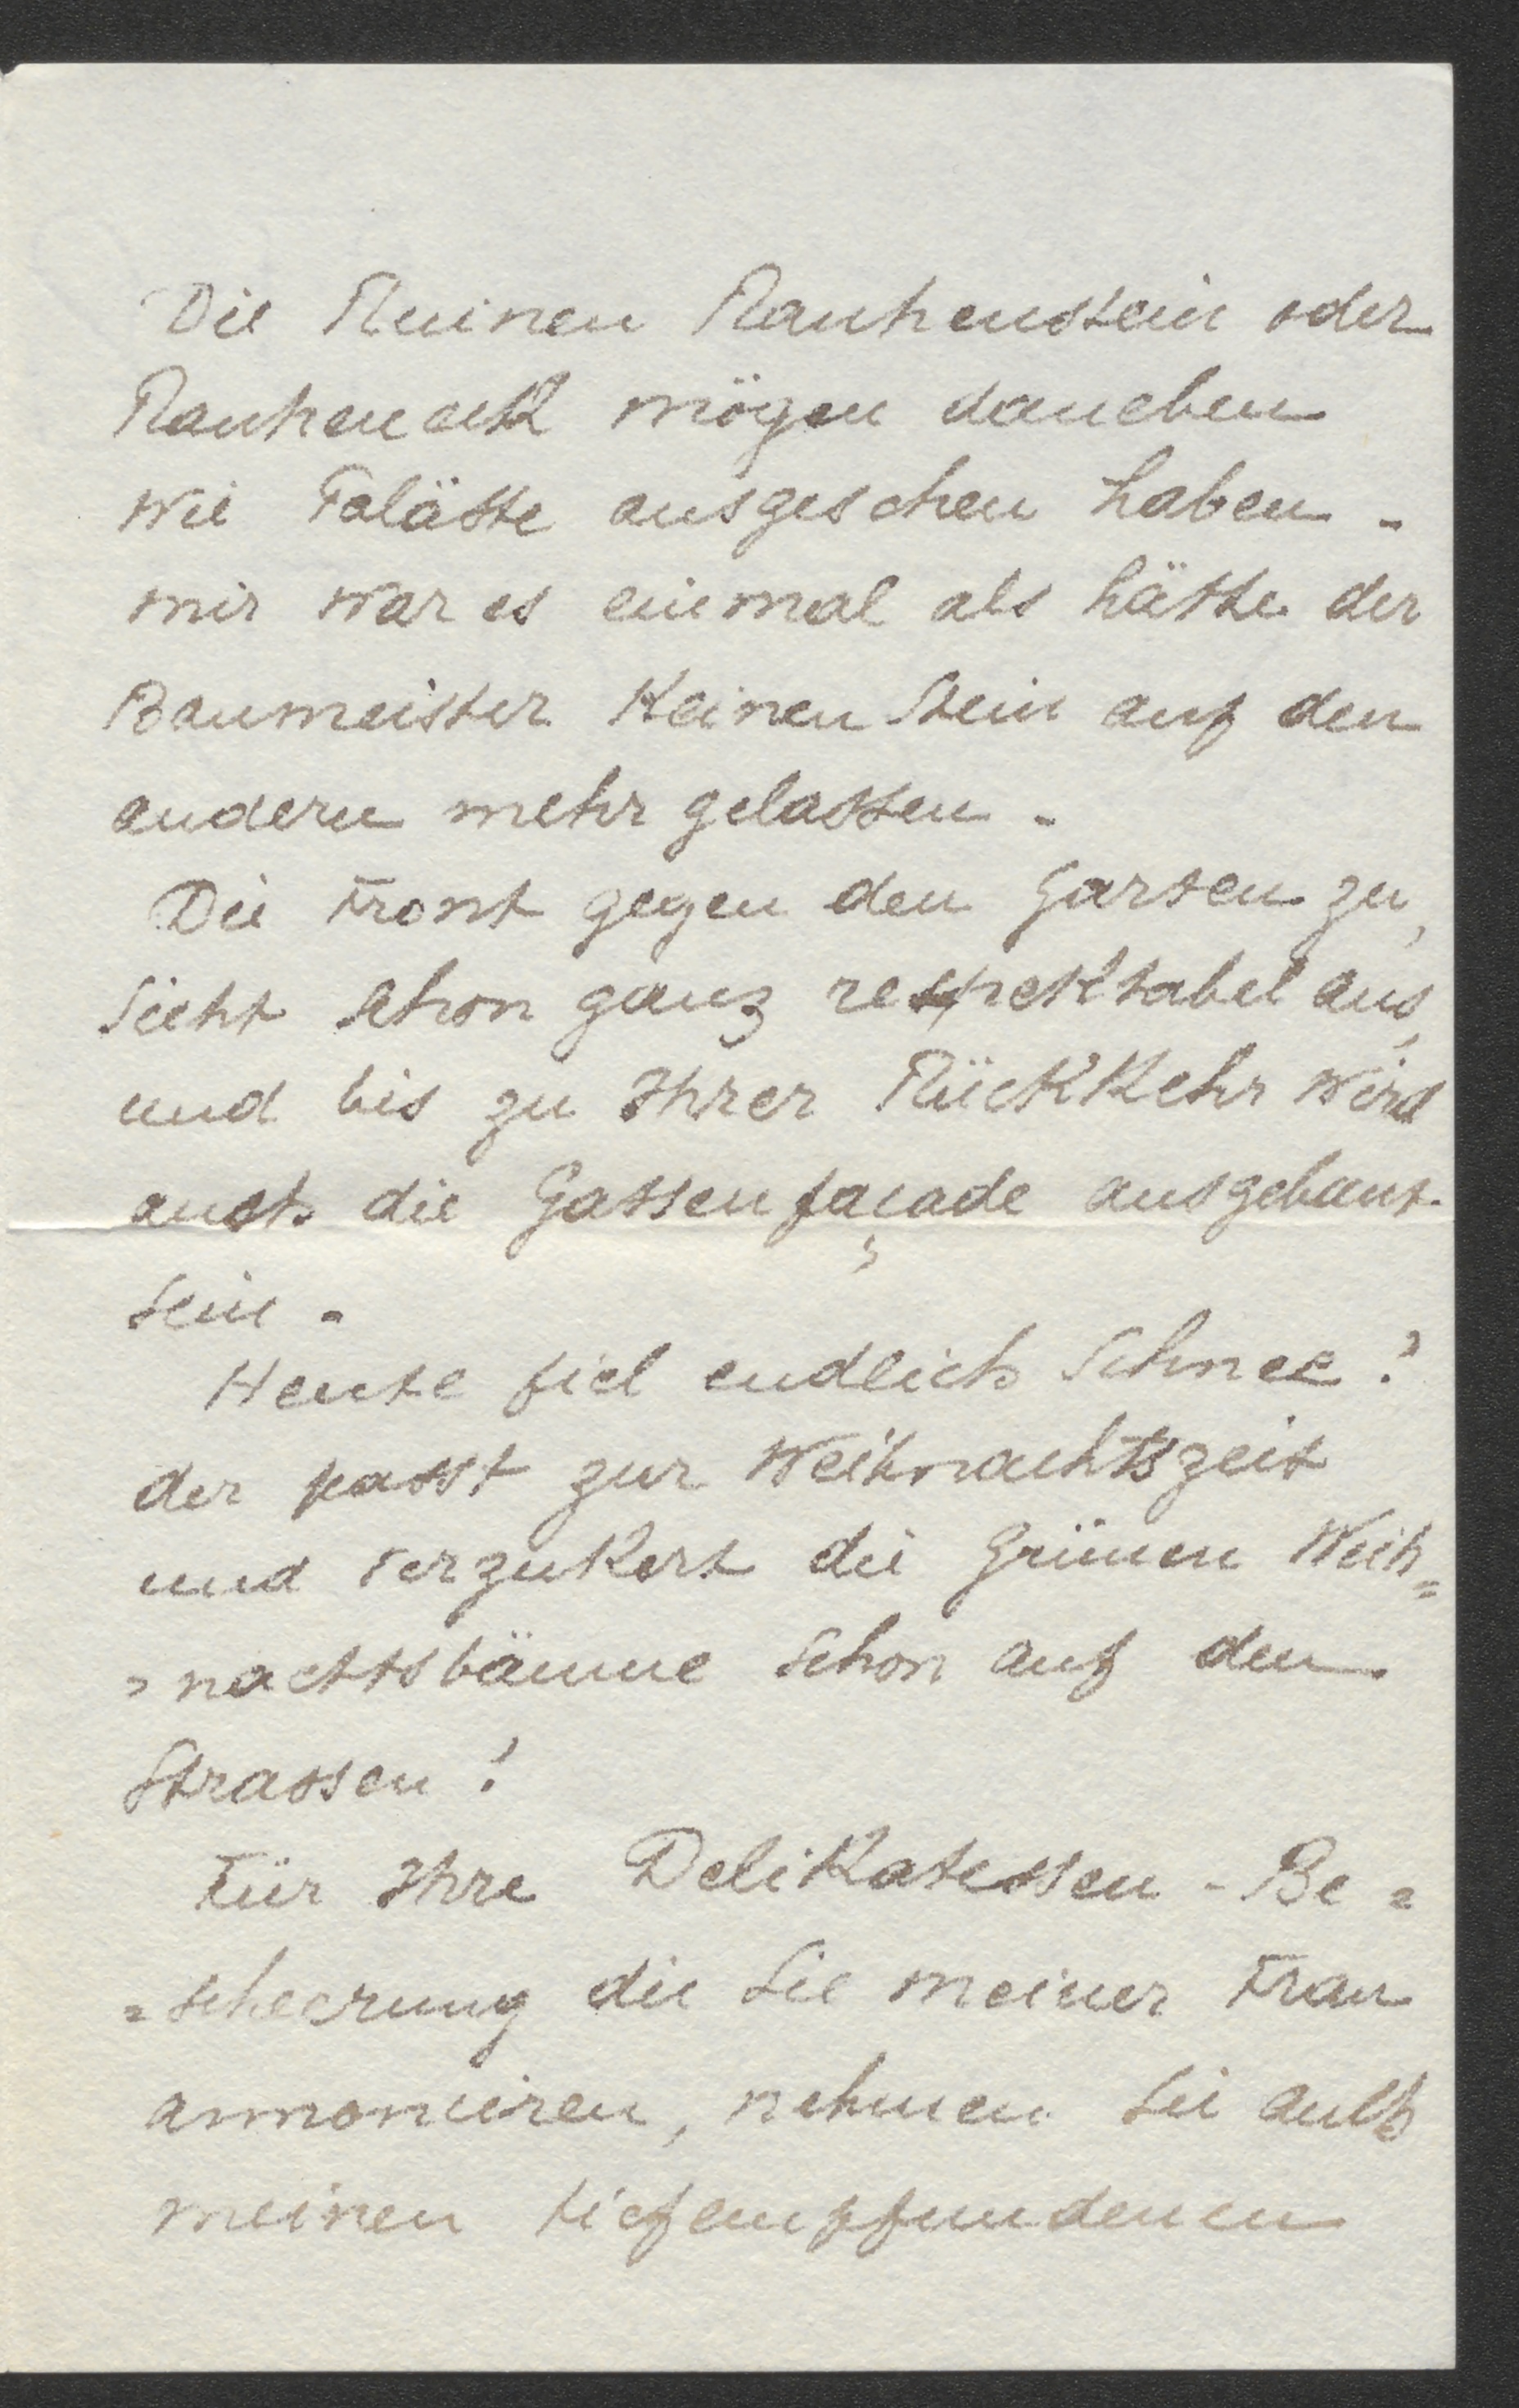 Die Ruinen Rauhenstein oder
Rauheneck mögen daneben
wie Paläste ausgesehen haben -
mir war es einmal als hätte der
Baumeister keinen Stein auf den
andern mehr gelassen -
Die Front gegen den Garten zu,
sieht schon ganz respektabel aus,
und bis zu Ihrer Rückkehr wird
auch die Gassenfaçade ausgebaut
sein -
Heute fiel endlich Schnee!
der passt zur Weihnachtszeit
und verzukert die Grünen Weih=
=nachtsbäume schon auf den
Strassen!
Für Ihre Delikatessen - Be=
=scheerung die Sie meiner Frau
annonciren, nehmen Sie auch
meinen tiefempfundenen